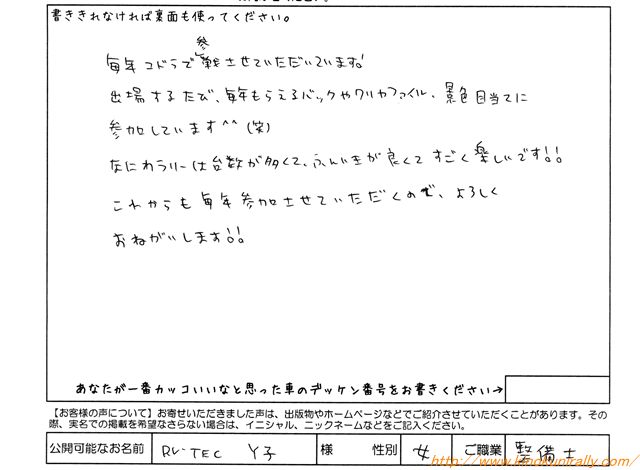 書ききれなければ裏面も使ってください。
毎年コドラで参戦させていただいています!
出場するたび、毎年もらえるバックやクリヤファイル、景色目当てに
参加しています^^(笑)
なにわラリーは台数が多くて、ふんいきが良くてすごく楽しいです!!
これからも毎年参加させていただくので、よろしく
おねがいします!!
あなたが一番カッコいいなと思った車のゼッケン番号をお書きください→
【お客様の声について】お寄せいただきました声は、出版物やホームページなどでご紹介させていただくことがあります。その
際、実名での掲載を希望なさらない場合は、イニシャル、ニックネームなどをご記入ください。
公開可能なお名前 RV-TEC Y子 様 性別 女 ご職業 整備士